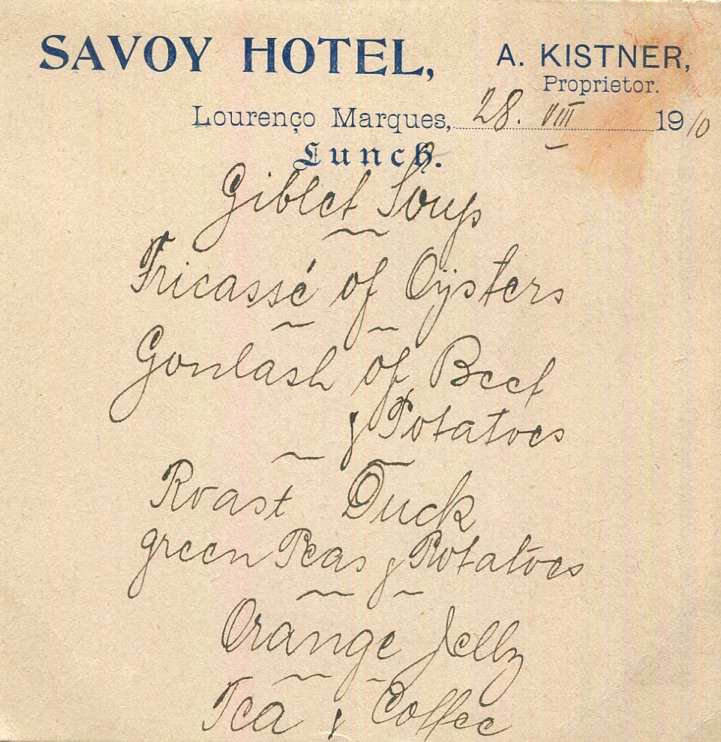 SAVOY HOTEL, A. KISTNER,
Proprietor.
Lourenço Marques, 28. VIII 1910
Lunch.
Giblet Soup
Fricassé of Oysters
Goulash of Beef
& Potatoes
Roast Duck
green Peas & Potatoes
Orange Jelly
Tea & Coffee